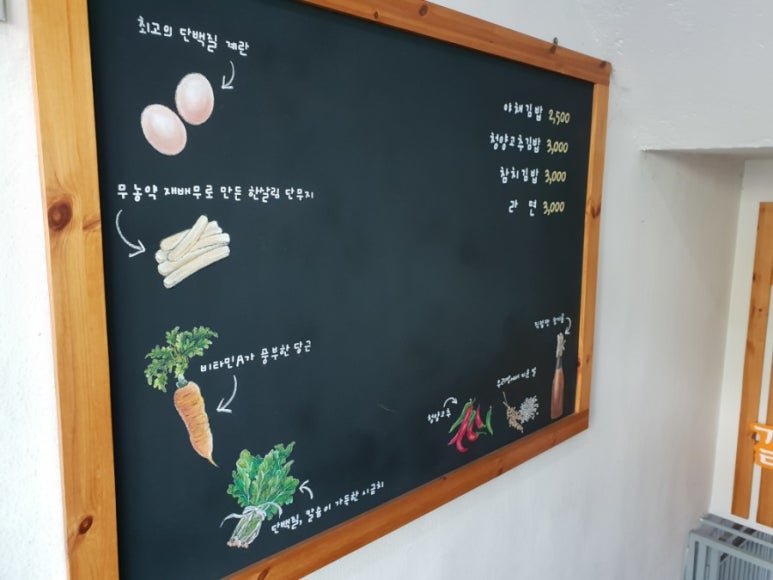 최고의 단백질 계란
야채김밥 2,500
청양고추김밥 3,000
참치김밥 3,000
라면 3,000
무농약 재배무로 만든 한살림 단무지
비타민A가 풍부한 당근
단백질, 칼슘이 가득한 시금치
청양고추